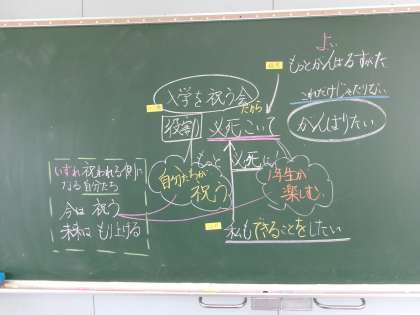 よい
もっとがんばるすがた
これだけじゃたりない
がんばりたい
入学を祝う会
だから
役割
必死こいて
もっと
必死に
自分たちが
祝う
1年生が
楽しむ
いずれ祝われる側に
なる自分たち
今は祝う
未来はもり上げる
私もできることをしたい